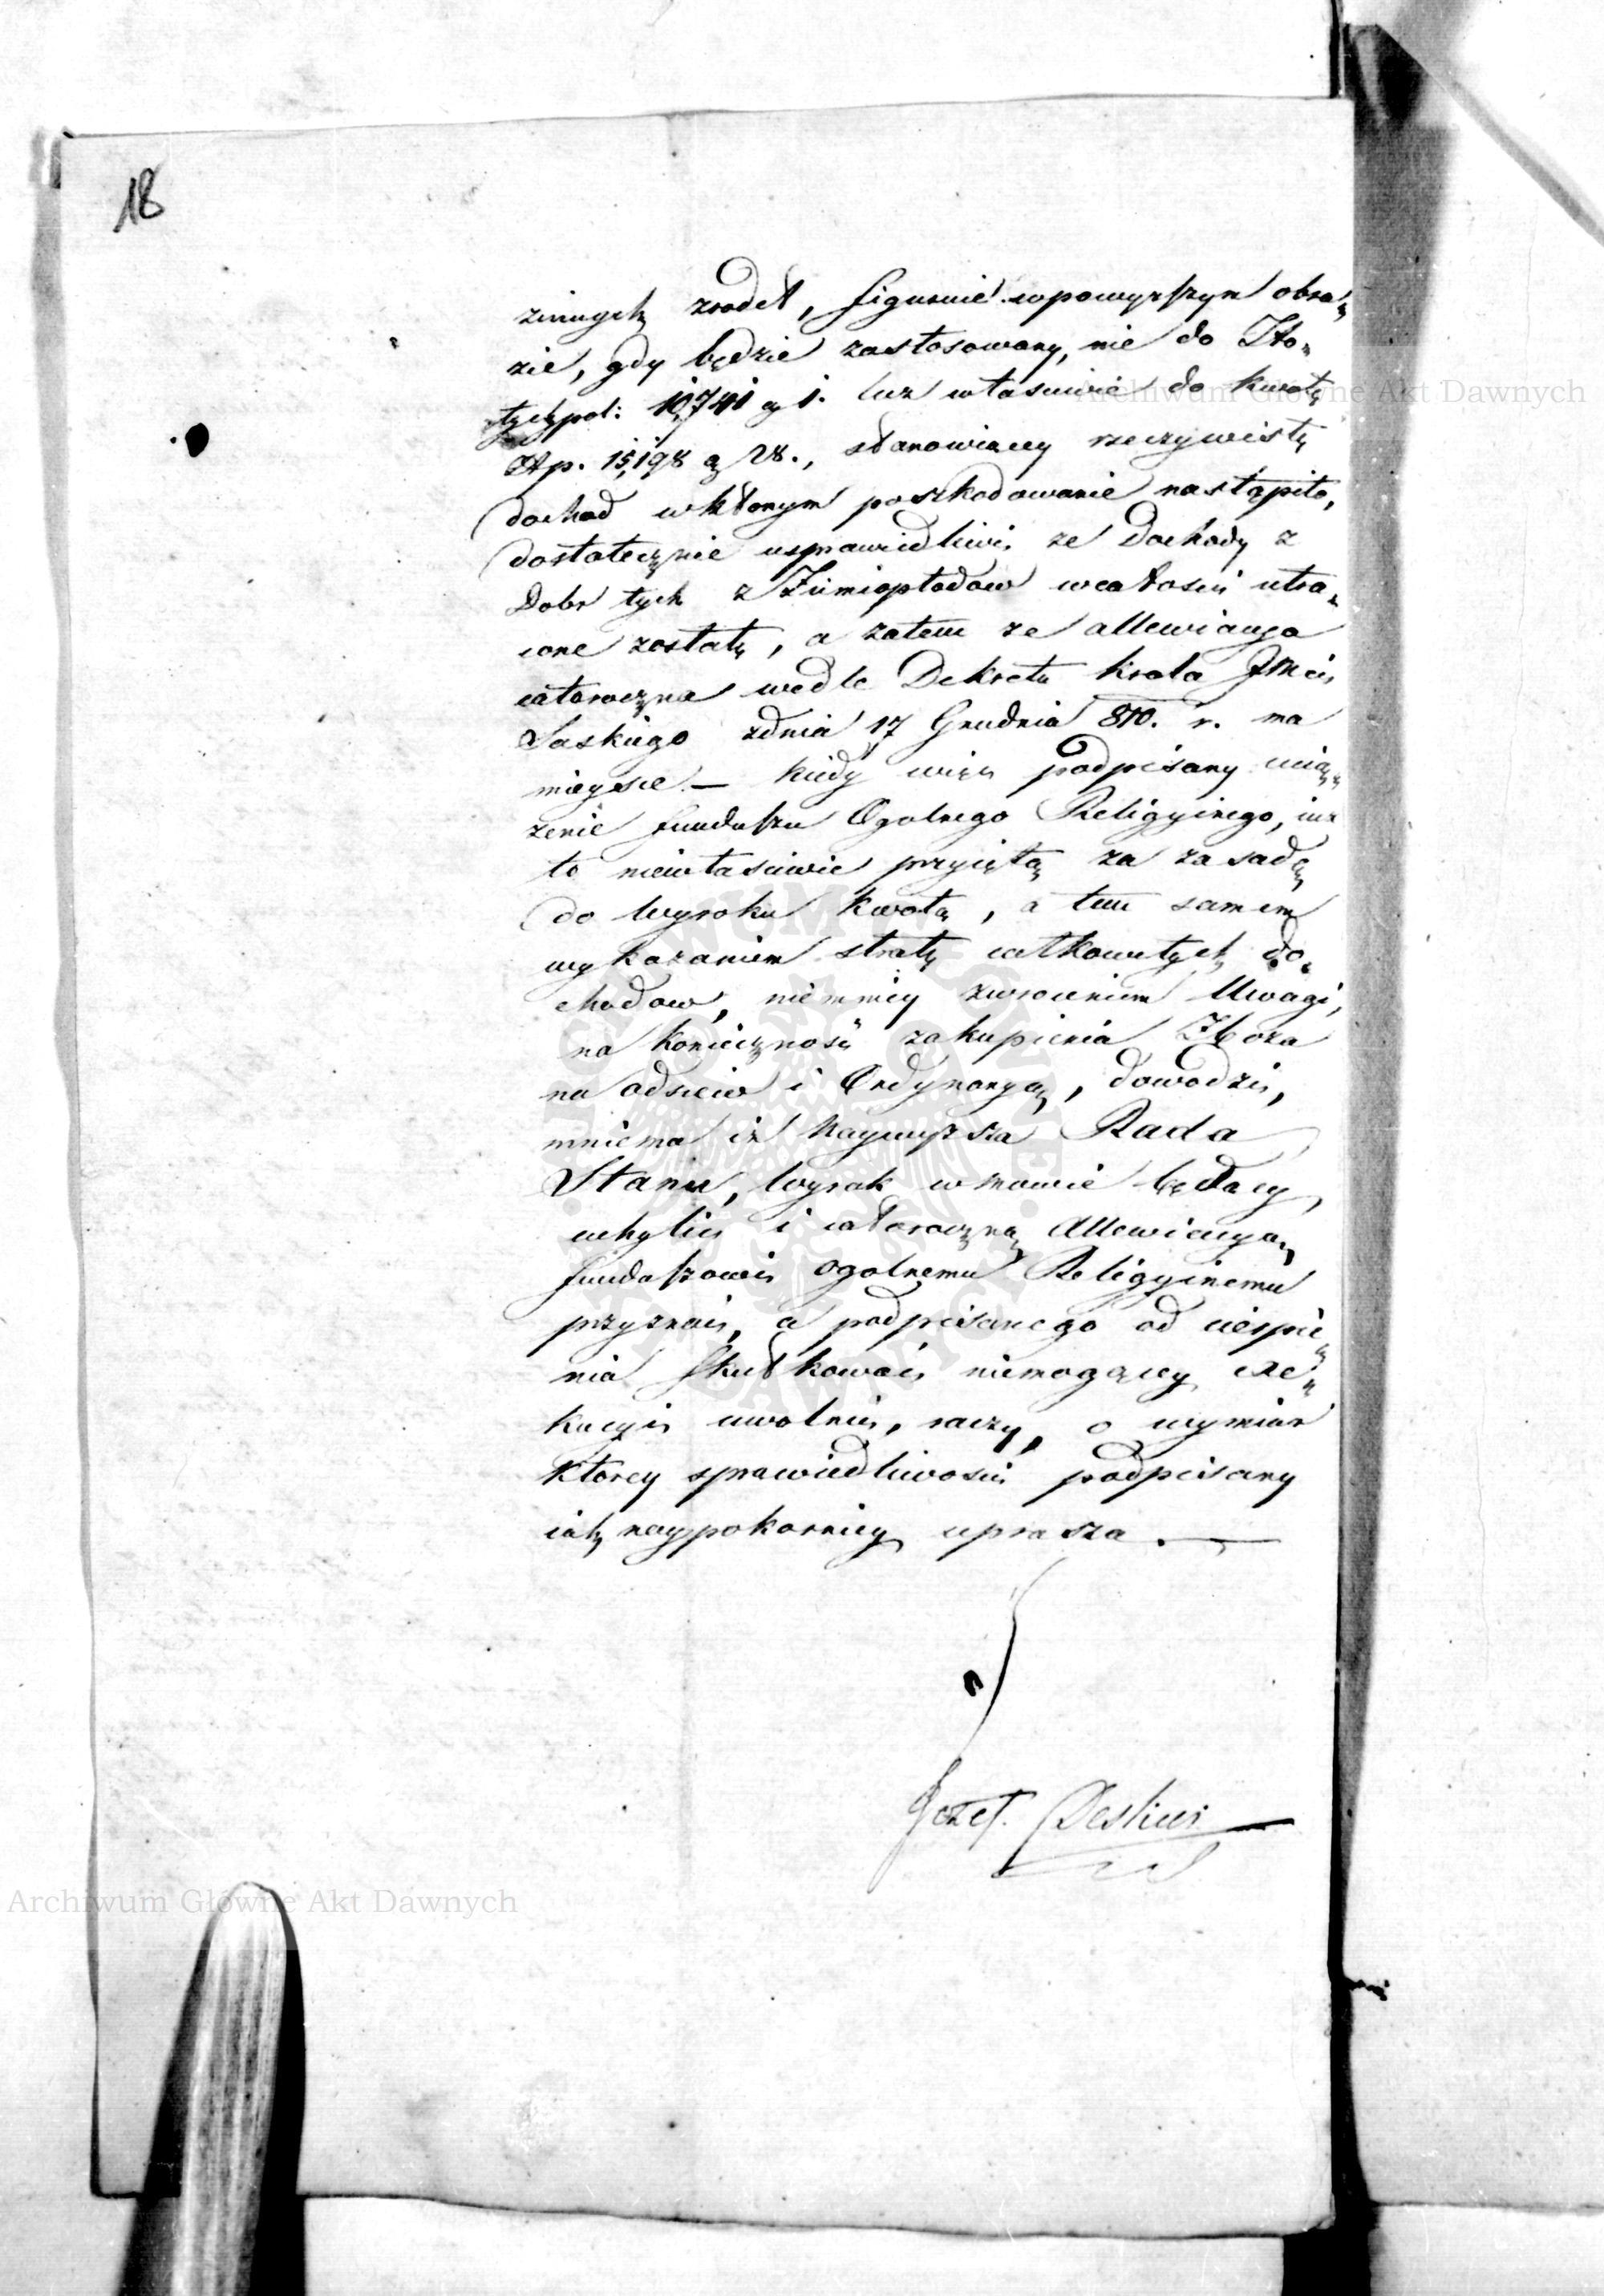 18
zinnych zrodeł, figurnie w powyższym obra„
zie, gdy będzie zastosowany, nie do Zło„
tych pol: 10,741 g 1. lecz właściwie do kwoty
Złp. 15,198 g 28., stanowiący rzeczywisty
dochod w ktorym poszkodowanie nastąpiło,
dostatecznie usprawiedliwi, ze Dochody z
Dobr tych z Ziemiopłodow w całości utra„
cone zostały, a zatem ze allewiacya
całoroczna wedle Dekretu Krola JMci
Saskiego z dnia 17 Grudnia 810. r. ma
mieysce. — Kiedy więc podpisany ucią„
zenie funduszu Ogolnego Religyinego, iuz
to niewłaściwie przyiętą za zasadę
do Wyroku kwotą, a tem samem
wykazaniem straty całkowitych do„
chodow, niemniey zwroceniem Uwagi,
na konieczność zakupienia Zboza
na odsiew i Ordynaryą, dowodzi,
mniema iz Naywyzsza Rada
Stanu, Wyrok w mowie będący,
uchylić i całoroczną Allewiacyą
funduszowi ogolnemu Religyinemu
przyznać, a podpisanego od cierpie„
nia skutkować niemogącey exe„
kucyi uwolnić, raczy, o wymiar
ktorey sprawiedliwości podpisany
iak naypokorniey uprasza. —
Jozef
Archiwum Główne Akt Dawnych
Archiwum Główne Akt Dawnych